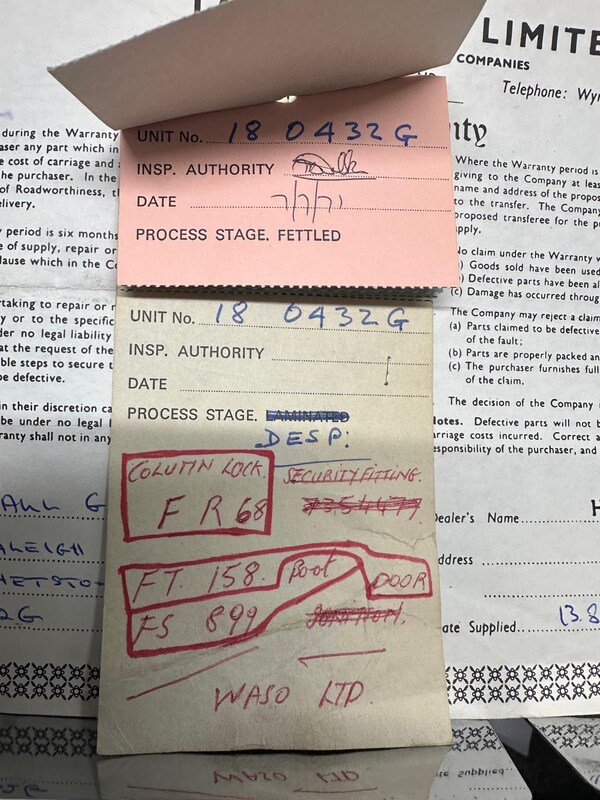 LIMITE
COMPANIES
Telephone: Wy
nty
during the Warranty
aser any part which in
e cost of carriage and
the purchaser. In the
of Roadworthiness, t
elivery.
y period is six months
e of supply, repair or
lause which in the Co
rtaking to repair or r
y or to the specific
der no legal liability
at the request of the
ble steps to secure t
be defective.
in their discretion ca
be under no legal l
ranty shall not in any
ALL G
ALEIGH
HETSTO
2G
UNIT No. 18 0432G
INSP. AUTHORITY
DATE 7/7/71
PROCESS STAGE. FETTLED
UNIT No. 18 0432G
INSP. AUTHORITY
DATE
PROCESS STAGE. LAMINATED
DESP:
COLUMN LOCK. SECURITY FITTING.
FR68 7354479
FT. 158. Boot DOOR
FS 899 IGNITION.
WASO LTD
Where the Warranty period is
giving to the Company at leas
name and address of the propos
to the transfer. The Company
proposed transferee for the p
pply.
No claim under the Warranty w
) Goods sold have been used
) Defective parts have been al
(c) Damage has occurred throug
The Company may reject a claim
(a) Parts claimed to be defective
of the fault;
(b) Parts are properly packed an
(c) The purchaser furnishes full
of the claim.
The decision of the Company i
lotes. Defective parts will not b
arriage costs incurred. Correct a
esponsibility of the purchaser, and
Dealer's Name H
ddress
ate Supplied 13.8